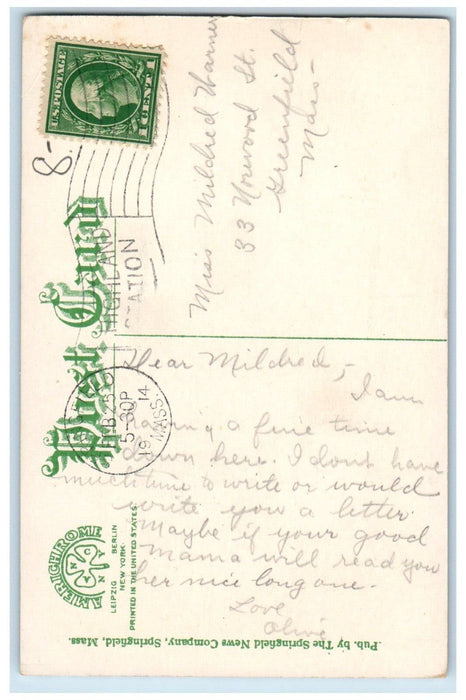 U.S. POSTAGE
1 CENT 1
8-
Post Card
HIGHLAND
STATION
FEB 25
5-30P
19 14
MASS.
Miss Mildred Warner
33 Norwood St.
Greenfield
Mass-
Dear Mildred,-
I am
having a fine time
down here. I dont have
much time to write or would
write you a letter.
Maybe if your good
Mama will read you
her nice long one.
Love
Olive
AMERICHROME
LEIPZIG BERLIN
NEW YORK
PRINTED IN THE UNITED STATES
Pub. by The Springfield News Company, Springfield, Mass.